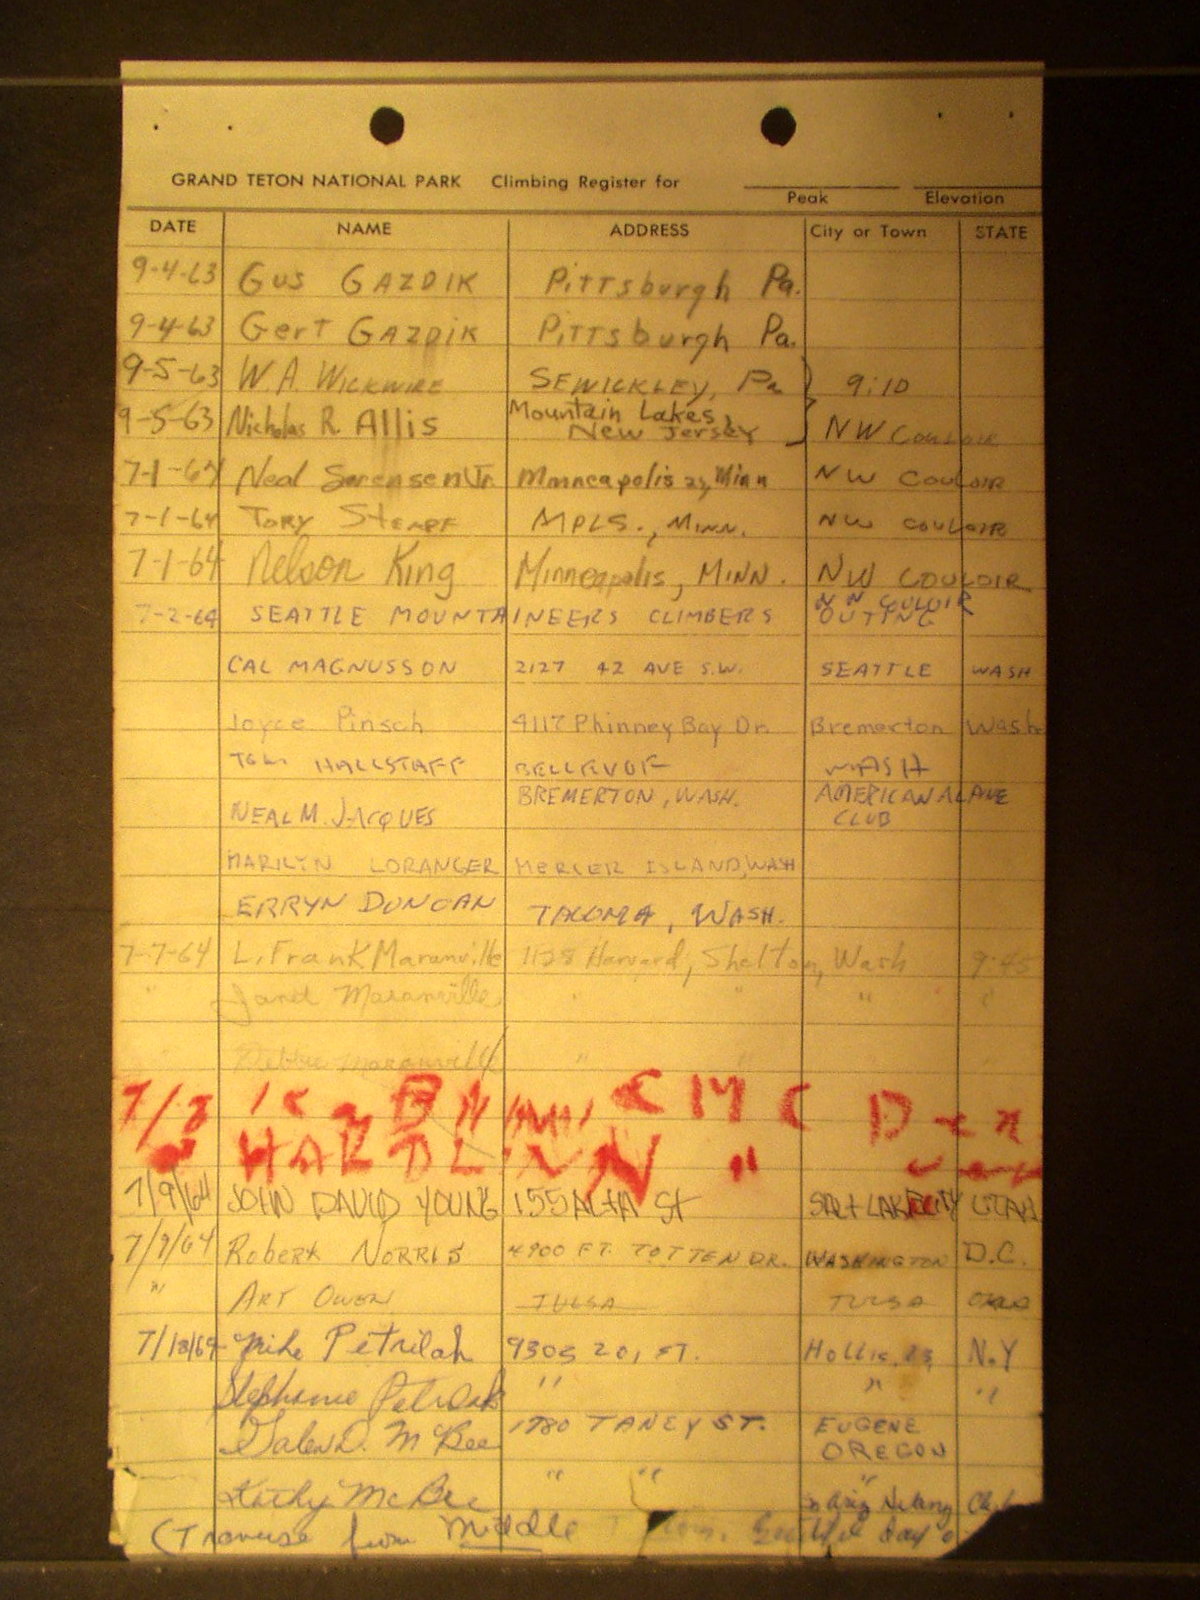 GRAND TETON NATIONAL PARK Climbing Register for
Peak Elevation
DATE NAME ADDRESS City or Town STATE
9-4-63 Gus GAZDIK Pittsburgh Pa.
9-4-63 Gert GAZDIK Pittsburgh Pa.
9-5-63 W.A. WICKWIRE SEWICKLEY, Pa 9:10
9-5-63 Nicholas R. Allis Mountain Lakes, New Jersey NW COULOIR
7-1-64 Neal Sorensen Jr. Minneapolis 23, Minn NW COULOIR
7-1-64 TORY STEMPF MPLS., MINN. NW COULOIR
7-1-64 Nelson King Minneapolis, MINN. NW COULOIR
NW COULOIR
7-2-64 SEATTLE MOUNTAINEERS CLIMBERS OUTING
CAL MAGNUSSON 2127 42 AVE S.W. SEATTLE WASH
Joyce Pinsch 4117 Phinney Bay Dr. Bremerton Wash
TOM HALLSTAFF BELLEVUE WASH
NEAL M. JACQUES BREMERTON, WASH. AMERICAN ALPINE CLUB
MARILYN LORANGER MERCER ISLAND, WASH
ERRYN DUNCAN TACOMA, WASH.
7-7-64 L. Frank Maranville 1128 Harvard, Shelton, Wash 9:45
" Janet Maranville " " " "
Debbie Maranville " "
7/8 CMC Den
HARDL "
7/9/64 JOHN DAVID YOUNG 155 ALTA St SALT LAKE CITY UTAH
7/9/64 Robert NORRIS 4900 FT. TOTTEN DR. WASHINGTON D.C.
" ART OWEN TULSA TULSA OKLA
7/18/64 Mike Petrilak 9305 201 ST. Hollis 23 N.Y
Stephanie Petrilak " " "
Galen D. McBee 1780 TANEY ST. EUGENE OREGON
Kathy McBee " " "
(Traverse from Middle day